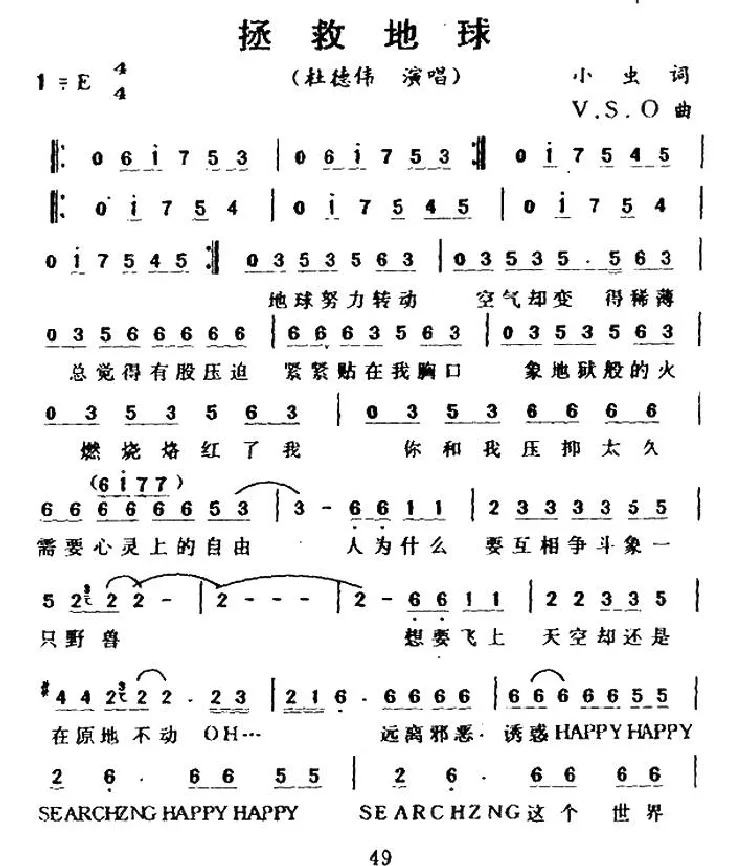 拯救地球
1=E 4/4 （杜德伟 演唱） 小虫 词
V.S.O 曲
‖: 0 6 i 7 5 3 | 0 6 i 7 5 3 :‖ 0 i 7 5 4 5 |
‖: 0 i 7 5 4 | 0 i 7 5 4 5 | 0 i 7 5 4 |
0 i 7 5 4 5 :‖ 0 3 5 3 5 6 3 | 0 3 5 3 5 . 5 6 3 |
地球努力转动 空气却变 得稀薄
0 3 5 6 6 6 6 6 | 6 6 6 3 5 6 3 | 0 3 5 3 5 6 3 |
总觉得有股压迫 紧紧贴在我胸口 象地狱般的火
0 3 5 3 5 6 3 | 0 3 5 3 6 6 6 6 |
燃烧烙红了我 你和我压抑太久
(6 i 7 7)
6 6 6 6 6 6 5 3 | 3 - 6 6 1 1 | 2 3 3 3 3 5 5 |
需要心灵上的自由 人为什么 要互相争斗象一
5 2 3 2 2 - | 2 - - - | 2 - 6 6 1 1 | 2 2 3 3 5 |
只野兽 想要飞上 天空却还是
#4 4 2 3 2 2 . 2 3 | 2 1 6 . 6 6 6 6 | 6 6 6 6 6 5 5 |
在原地不动 OH… 远离邪恶. 诱惑HAPPY HAPPY
2 6 . 6 6 5 5 | 2 6 . 6 6 6 6 |
SEARCHZNG HAPPY HAPPY SEARCHZNG这个世界
49